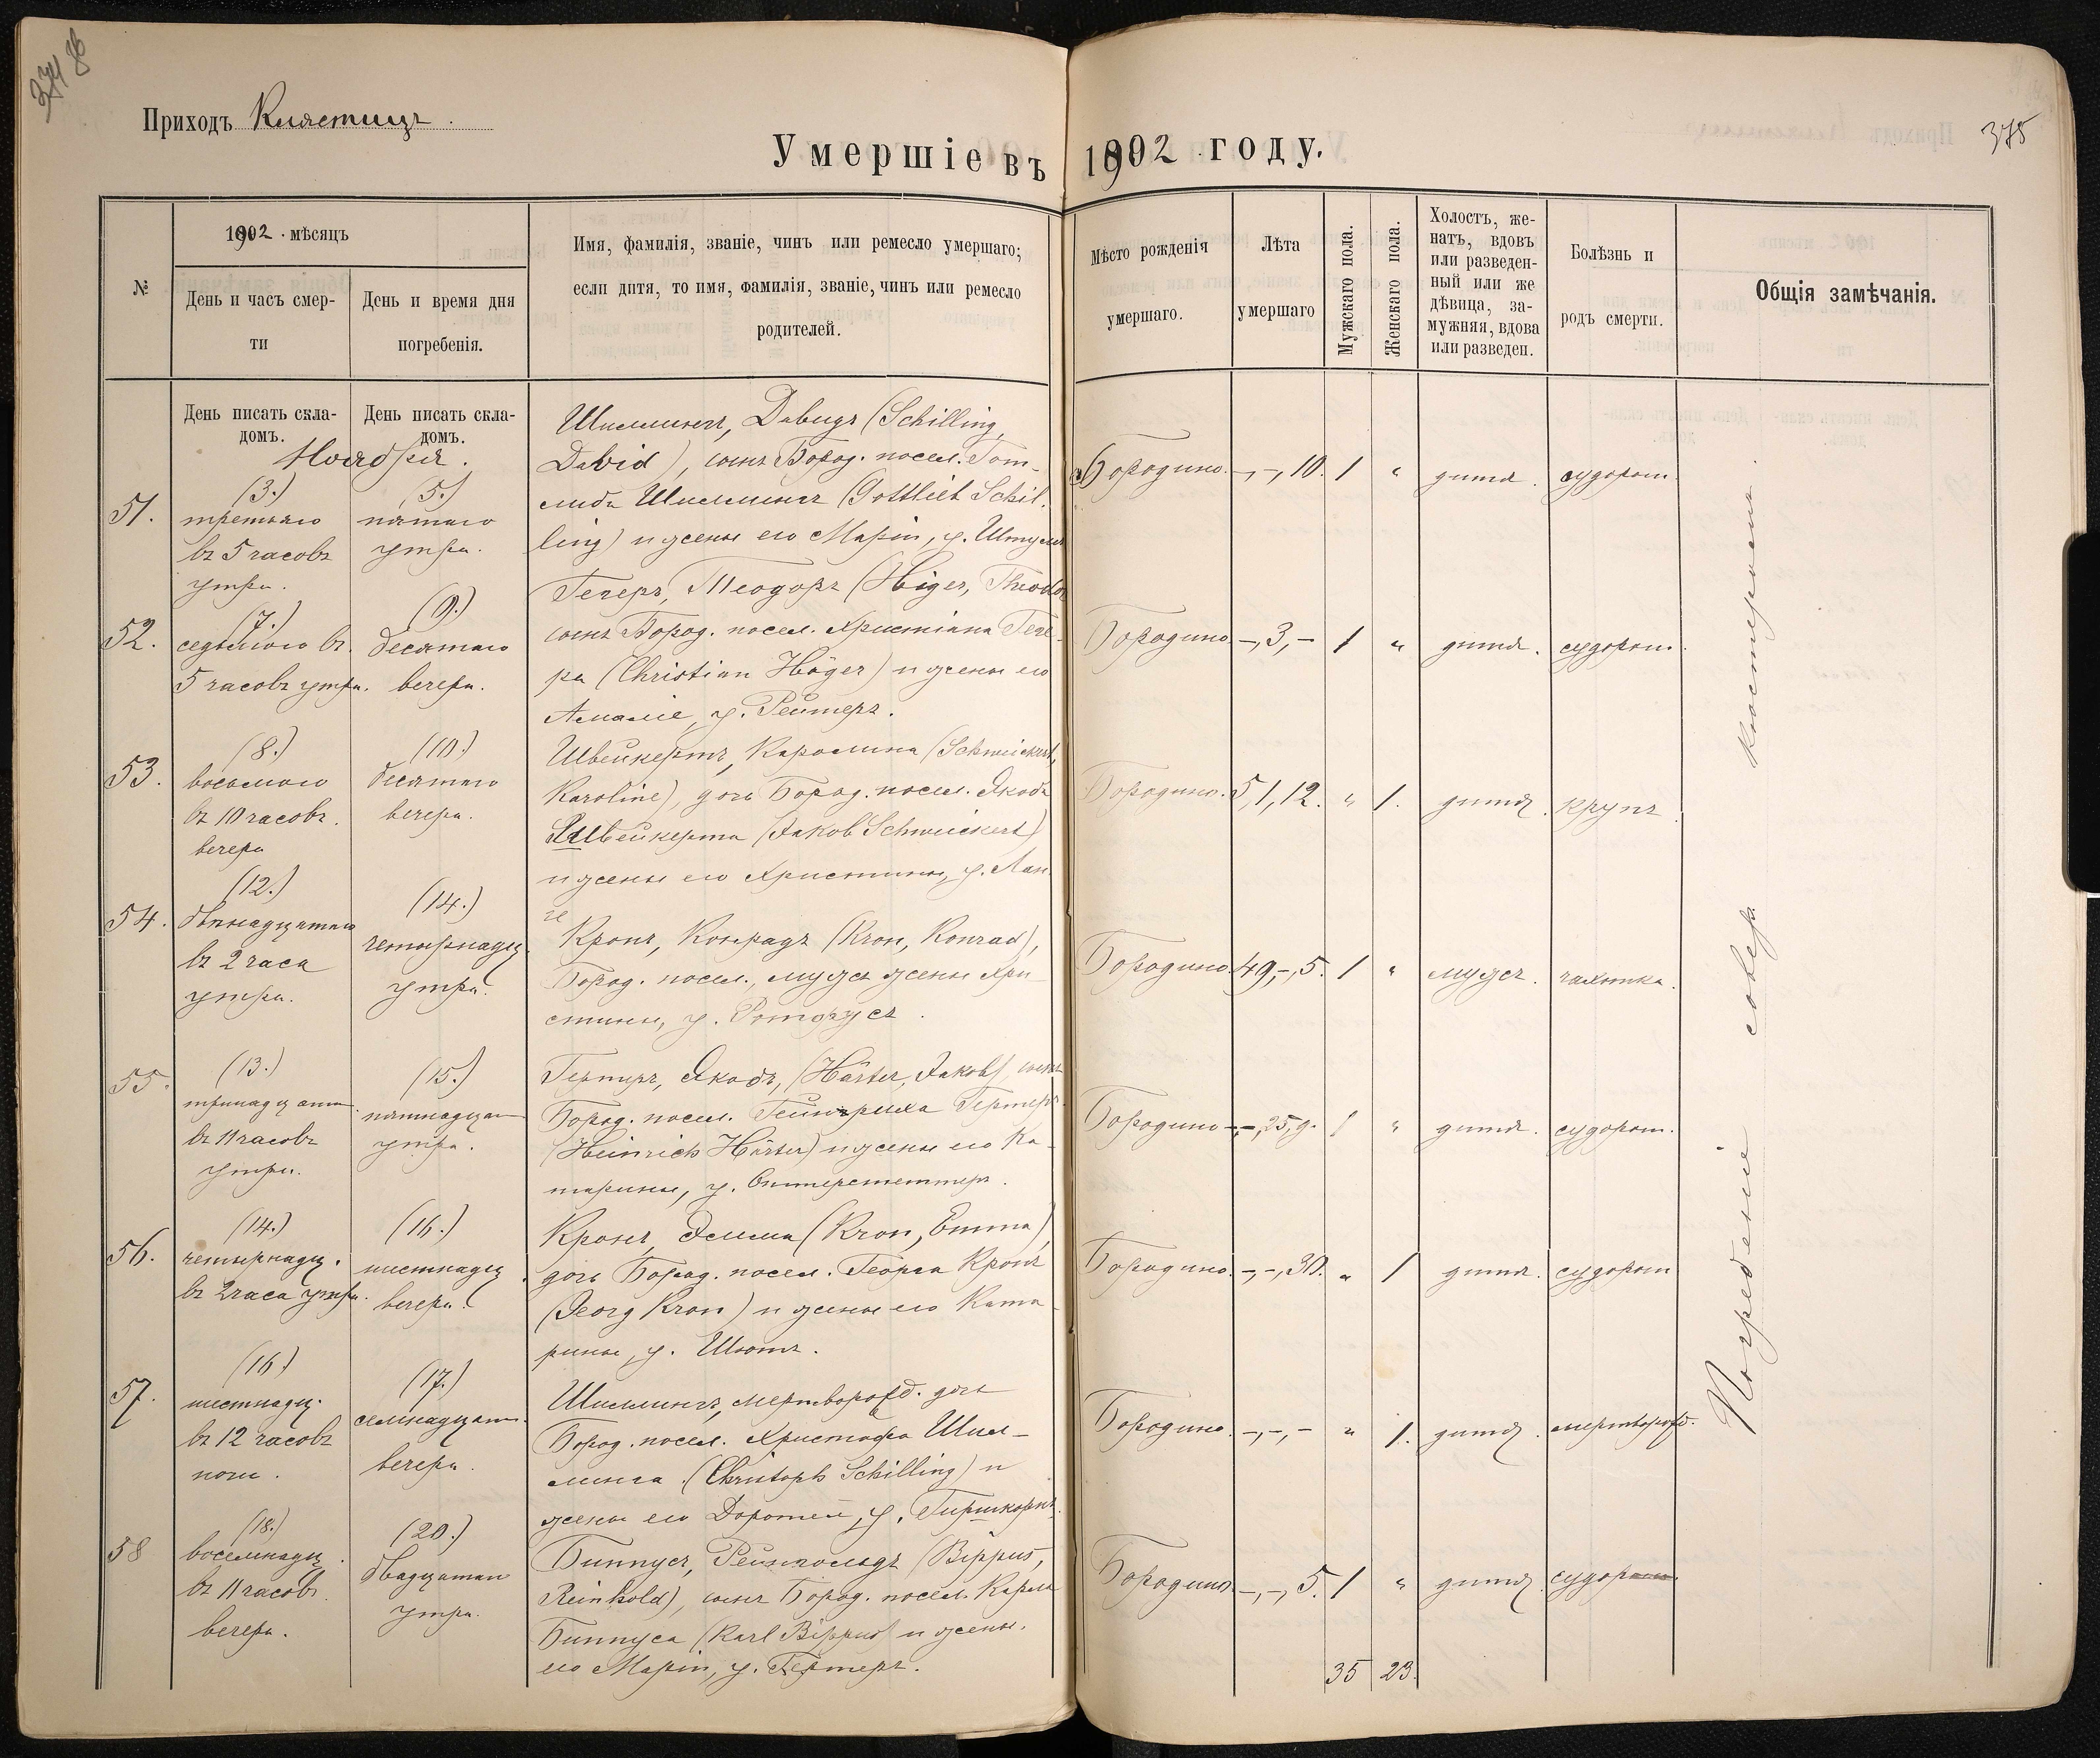 374 об
Приходъ Клястицъ.
375
Умершіе въ 1902 году.
№
1902 мѣсяцъ
День и часъ смерти
День и время дня погребенія.
Имя, фамилія, званіе, чинъ или ремесло умершаго;
если дитя, то имя, фамилія, званіе, чинъ или ремесло
родителей.
Мѣсто рожденія умершаго.
Лѣта умершаго
Мужскаго пола.
Женскаго пола.
Холостъ, же-
натъ, вдовъ
или разведен-
ный или же
дѣвица, за-
мужняя, вдова
или разведен.
Болѣзнь и
родъ смерти.
Общія замѣчанія.
День писать скла-
домъ.
День писать скла-
домъ.
Ноября.
51.
(3.)
третьяго
въ 5 часовъ
утра.
(5.)
пятаго
утра.
Шиллингъ, Давидъ (Schilling,
David), сынъ Бород. посел. Гот-
либа Шиллингъ (Gottlieb Schil-
ling) и жены его Маріи, у.
Бородино. -,-,10. 1 " дитя. судорог.
52.
(7.)
седьмого въ
5 часовъ утра.
(9.)
десятаго
вечера.
Гегеръ, Теодоръ (Häger, Theodor
сынъ Бород. посел. Христіана Геге-
ра (Christian Häger) и жены его
Амаліе, у. Рейтеръ.
Бородино -,3,- 1 " дитя. судорог.
53.
(8.)
восьмого
въ 10 часовъ.
вечера
(10.)
десятаго
вечера.
Швейкертъ, Каролина (Schweickert,
Karoline), дочь Бород. посел. Якобъ
Швейкерта (Jakob Schweickert)
и жены его Христины, у. Лан-
ге
Бородино. 5,1,12. " 1. дитя. крупъ
54.
(12.)
двѣнадцатаго
въ 2 часа
утра.
(14.)
четырнадц.
утра.
Кронъ, Конрадъ (Kron, Konrad),
Бород. посел., мужъ жены Хри-
стины, у. Ротфусъ.
Бородино. 49,-,5. 1 " мужъ. чахотка.
55.
(13.)
тринадцати.
въ 11 часовъ
утра.
(15.)
пятнадцат
утра.
Гертеръ, Якобъ, (Härter, Jakob) сынъ
Бород. посел. Гейнриха Гертеръ
(Heinrich Härter) и жены его Ка-
тарины, у.
Бородино -,-,25,д. 1 " дитя. судорог.
56.
(14.)
четырнадц.
въ 2 часа утра.
(16.)
шестнадц.
вечера.
Кронъ, Эмма (Kron, Emma)
дочь Бород. посел. Георга Кронъ
(Georg Kron) и жены его Ката-
рины, у. Шютъ.
Бородино. -,-,30. " 1 дитя. судорог
57.
(16)
шестнадц.
въ 12 часовъ
ночи.
(17.)
семнадцат.
вечера.
Шиллингъ, мертворожд. дочь
Бород. посел. Христофа Шил-
линга (Christoph Schilling) и
жены его Доротеи, у. Гиршкорнъ.
Бородино. -,-,- " 1. дитя. мертворожд.
58
(18.)
восемнадц.
въ 11 часовъ.
вечера.
(20.)
двадцатаго
утра.
Биппусъ, Рейнгольдъ (Bippus,
Reinhold), сынъ Бород. посел. Карла
Биппуса (Karl Bippus) и жены.
его Маріи, у. Гертеръ.
Бородино. -,-,5. 1 " дитя. судорог.
35 23.
Погребеніе совер. кистеромъ.